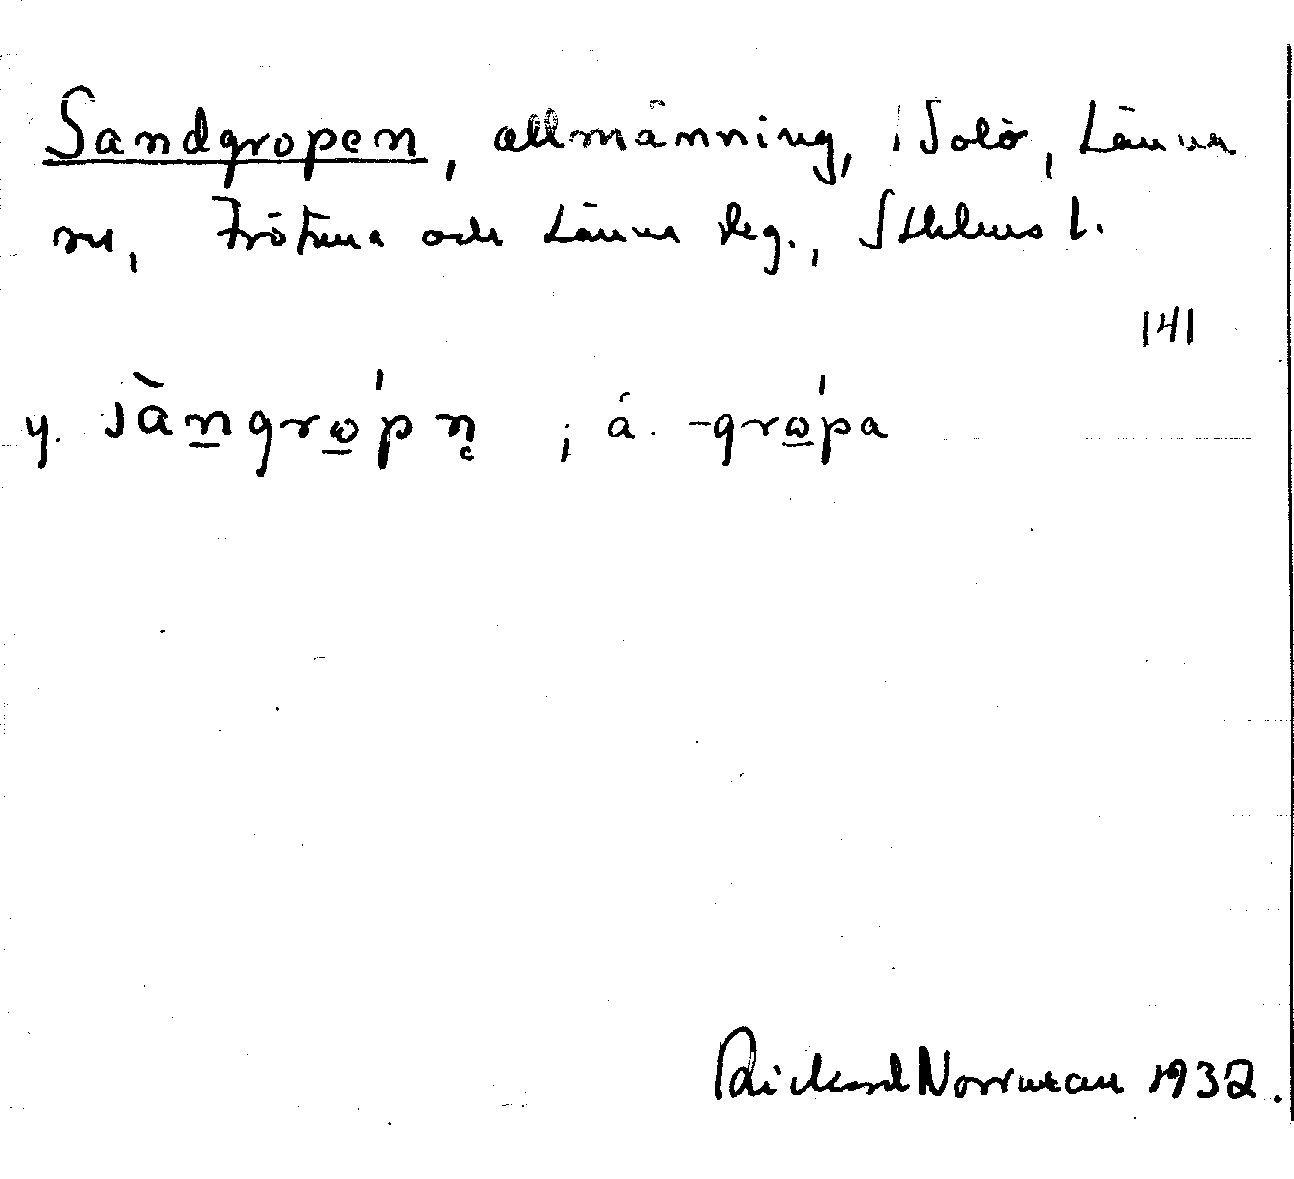 Sandgropen, allmänning, i Solö, Länna
sn, Frötuna och Länna skg., Sthlms l.
141
y. sàngrọ'pn̥ ; ä. -grọ'pa
Rickard Norrman 1932.